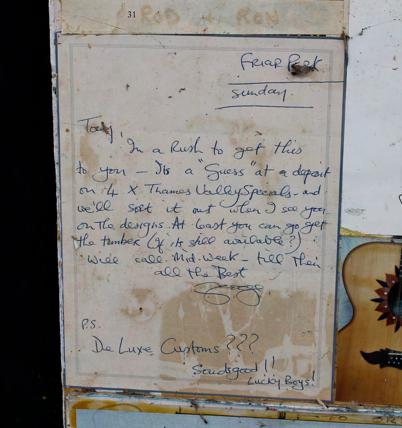 31
ROD + RON
FRIAR Park
Sunday.
Tony,
In a Rush to get this
to you – Its a "Guess" at a deposit
on 4 x Thames Valley Specials - and
we'll sort it out when I see you
on the designs. At least you can go get
the timber (if its still available?)
will call Mid. week – till then
all the Best
George
P.S.
De Luxe Customs ???
Soundsgood!!
Lucky Boys!